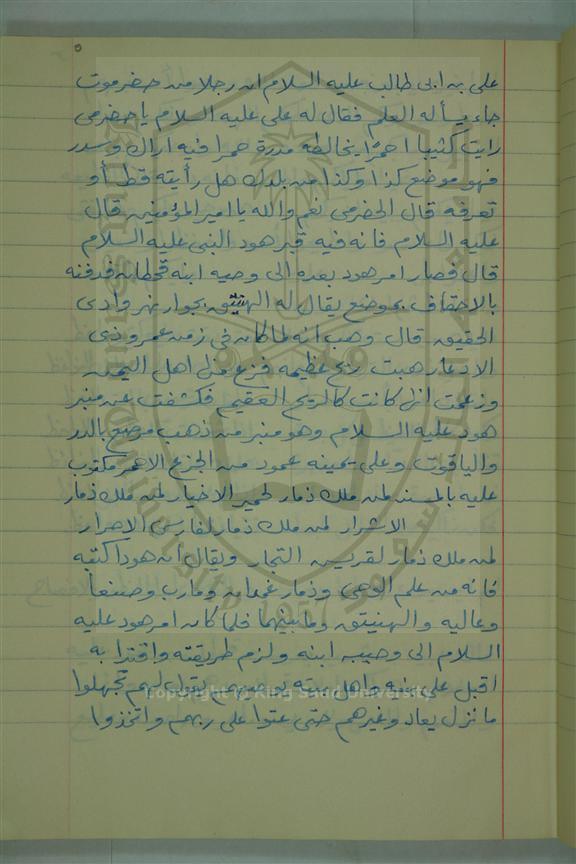 ٥
على بن ابى طالب عليه السلام ان رجلا من حضرموت
جاء يسأله العلم فقال له على عليه السلام يا حضرمى
رايت كثيبا احمرا يخالطه مدرة حمرا فيه اراك وسدر
فهو موضع كذا وكذا من بلدك هل رأيته قط أو
تعرفه قال الحضرمى نعم والله يا امير المؤمنين قال
عليه السلام فانه فيه قبر هود النبى عليه السلام
قال فصار امر هود بعده الى وصيه ابنه قحطان فدفنه
بالاحقاف بموضع يقال له الهنيبق بجوار نهر وادى
الحقيق قال وهب انه لما كان فى زمن عمرو ذى
الادعار هبت ريح عظيمه فزع منها اهل اليمن
وزعمت انها كانت كالريح العقيم فكشفت عن منبر
هود عليه السلام وهو منبر من ذهب مرصع بالدر
والياقوت وعلى يمينه عمود من الجزع الاحمر مكتوب
عليه بالمسند لمن ملك ذمار لحمير الاخيار لمن ملك ذمار
الاشرار لمن ملك ذمار لفارس الاحرار
لمن ملك ذمار لقريش التجار ويقال ان هودا كتبه
فانه من علم الوحى وذمار غمدان ومارب وصنعا
وعاليه والهنيبق وما بينهما فلما كان امر هود عليه
السلام الى وصيه ابنه ولزم طريقته واقتدا به
اقبل على بنيه واهل بيته يقول لهم تجهلوا
ما نزل بعاد وغيرهم حتى عتوا على ربهم واتخذوا
Copyright © King Saud University
1957